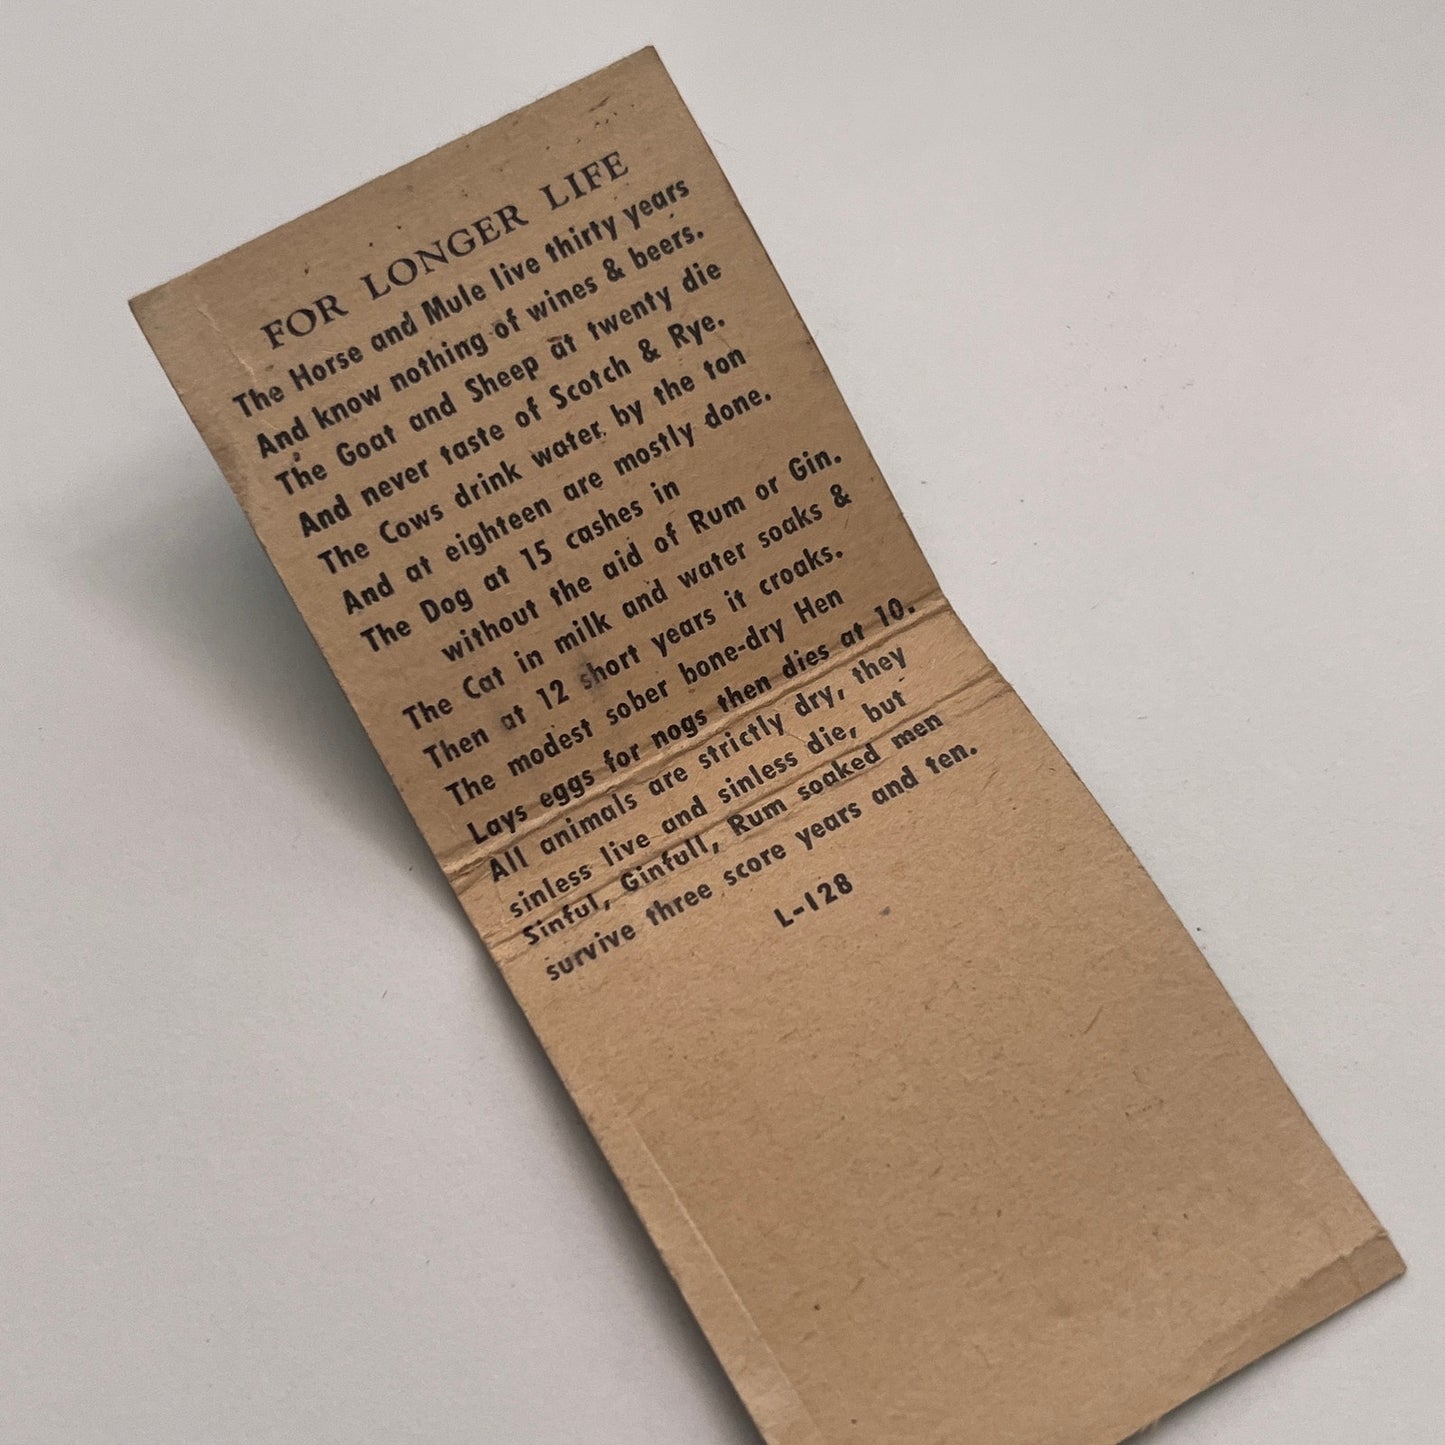 FOR LONGER LIFE
The Horse and Mule live thirty years
And know nothing of wines & beers.
The Goat and Sheep at twenty die
And never taste of Scotch & Rye.
The Cows drink water by the ton
And at eighteen are mostly done.
The Dog at 15 cashes in
without the aid of Rum or Gin.
The Cat in milk and water soaks &
Then at 12 short years it croaks.
The modest sober bone-dry Hen
Lays eggs for nogs then dies at 10.
All animals are strictly dry, they
sinless live and sinless die, but
Sinful, Ginfull, Rum soaked men
survive three score years and ten.
L-128